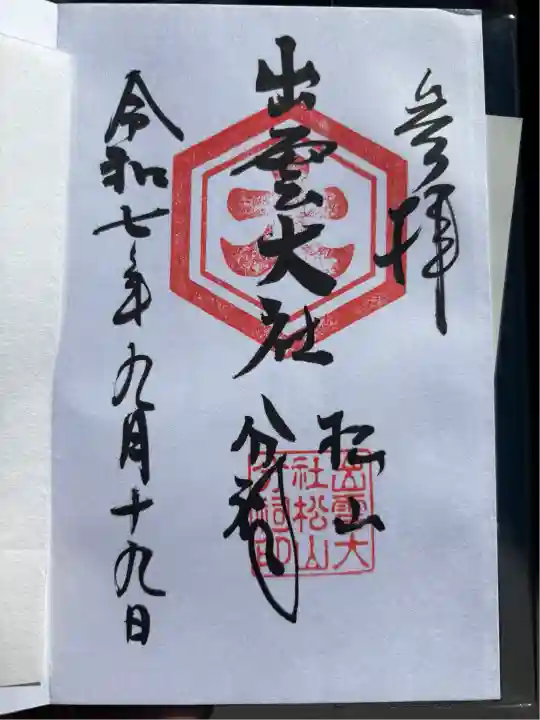 参拝
出雲大社
松山
分祠
出雲大
社松山
分祠印
令和七年九月十九日